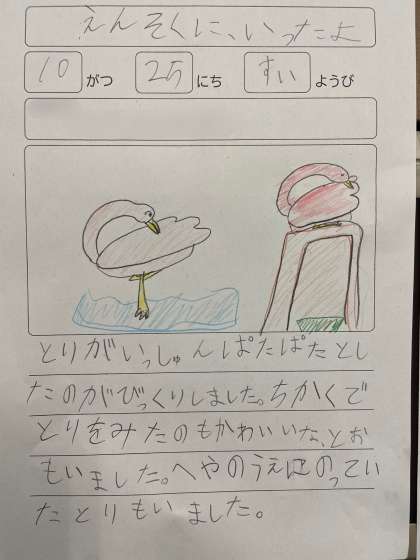 えんそくに、いったよ
10 がつ 25 にち すい ようび
とりがいっしゅんぱたぱたとし
たのがびっくりしました。ちかくで
とりをみたのもかわいいな、とお
もいました。へやのうえにのってい
たとりもいました。